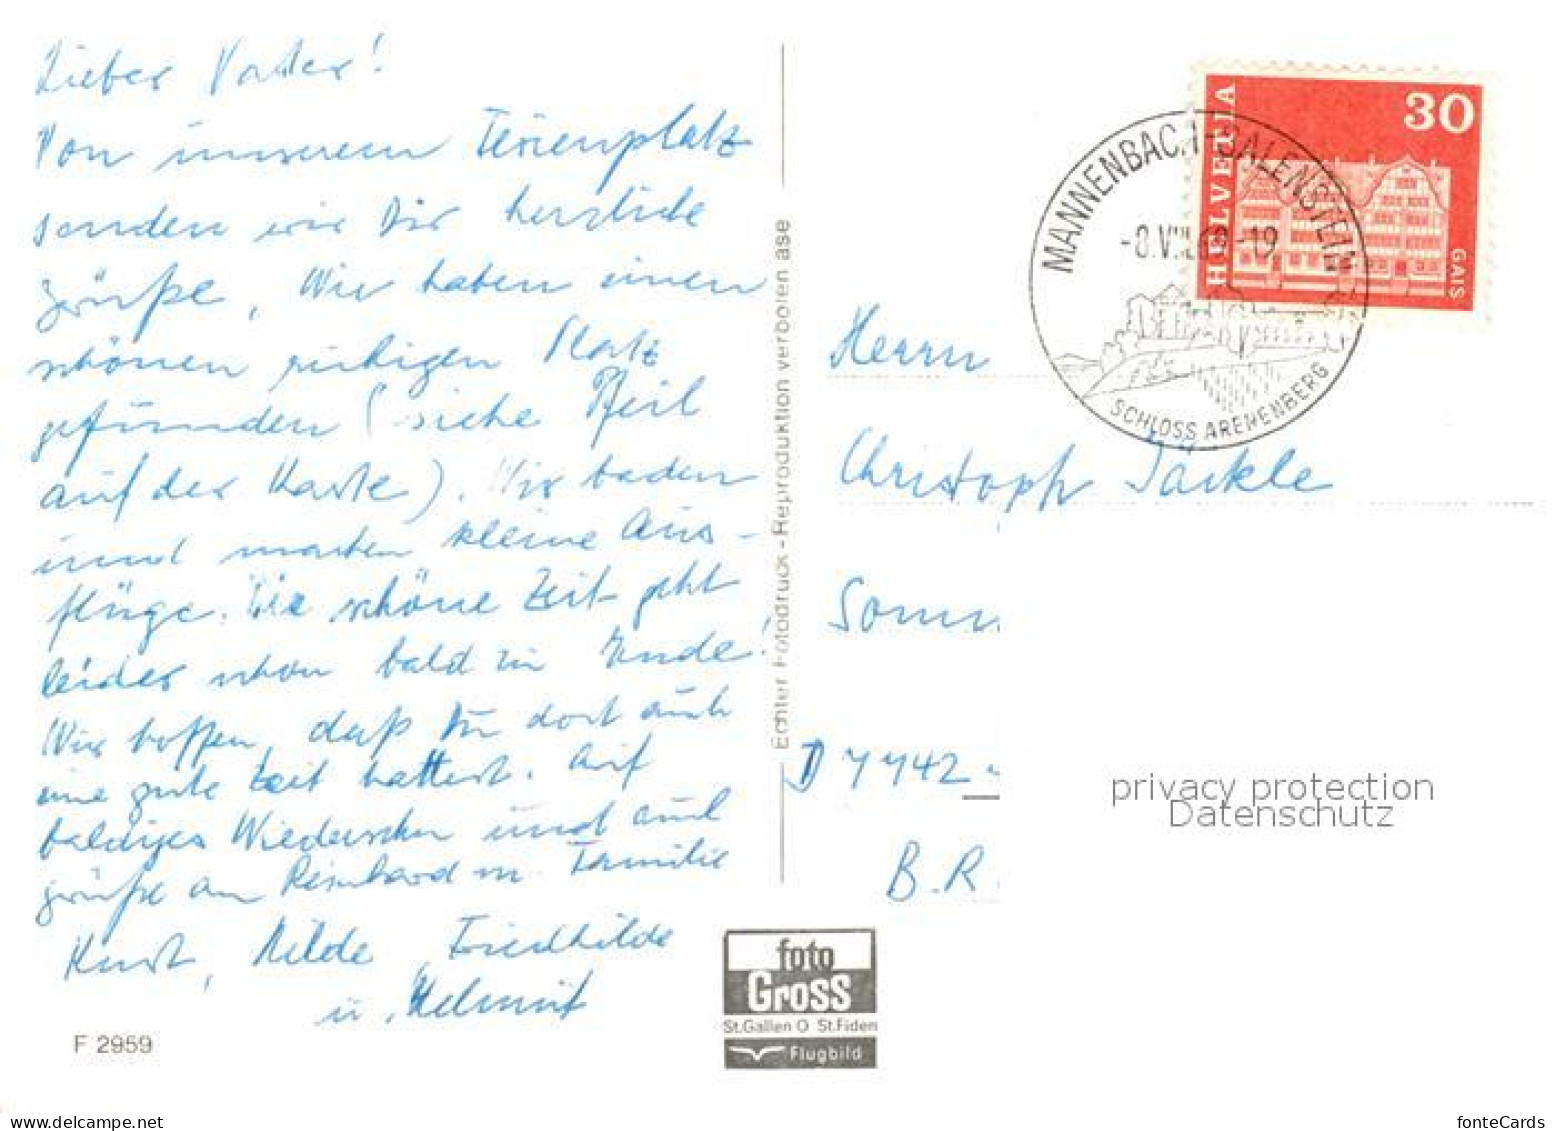 Lieber Vater!
Von unserem Ferienplatz
senden wir Dir herzliche
Grüße, Wir haben einen
schönen ruhigen Platz
gefunden (siehe Pfeil
auf der Karte). Wir baden
und machen kleine Aus-
flüge. Die schöne Zeit geht
leider schon bald zu Ende!
Wir hoffen, daß Du dort auch
eine gute Zeit hattest. Auf
baldiges Wiedersehen und auch
Grüße an Reinhard m. Familie
Kurt, Hilde, Friedhilde
u. Helmut
F 2959
Echter Fotodruck - Reproduktion verboten ase
foto
Gross
St.Gallen O St.Fiden
Flugbild
HELVETIA
30
GAIS
MANNENBACH-SALENSTEIN
-8.VII.68-19
SCHLOSS ARENENBERG
Herrn
Christoph Jäckle
D 7742
B.R.
privacy protection
Datenschutz
www.delcampe.net
fonteCards